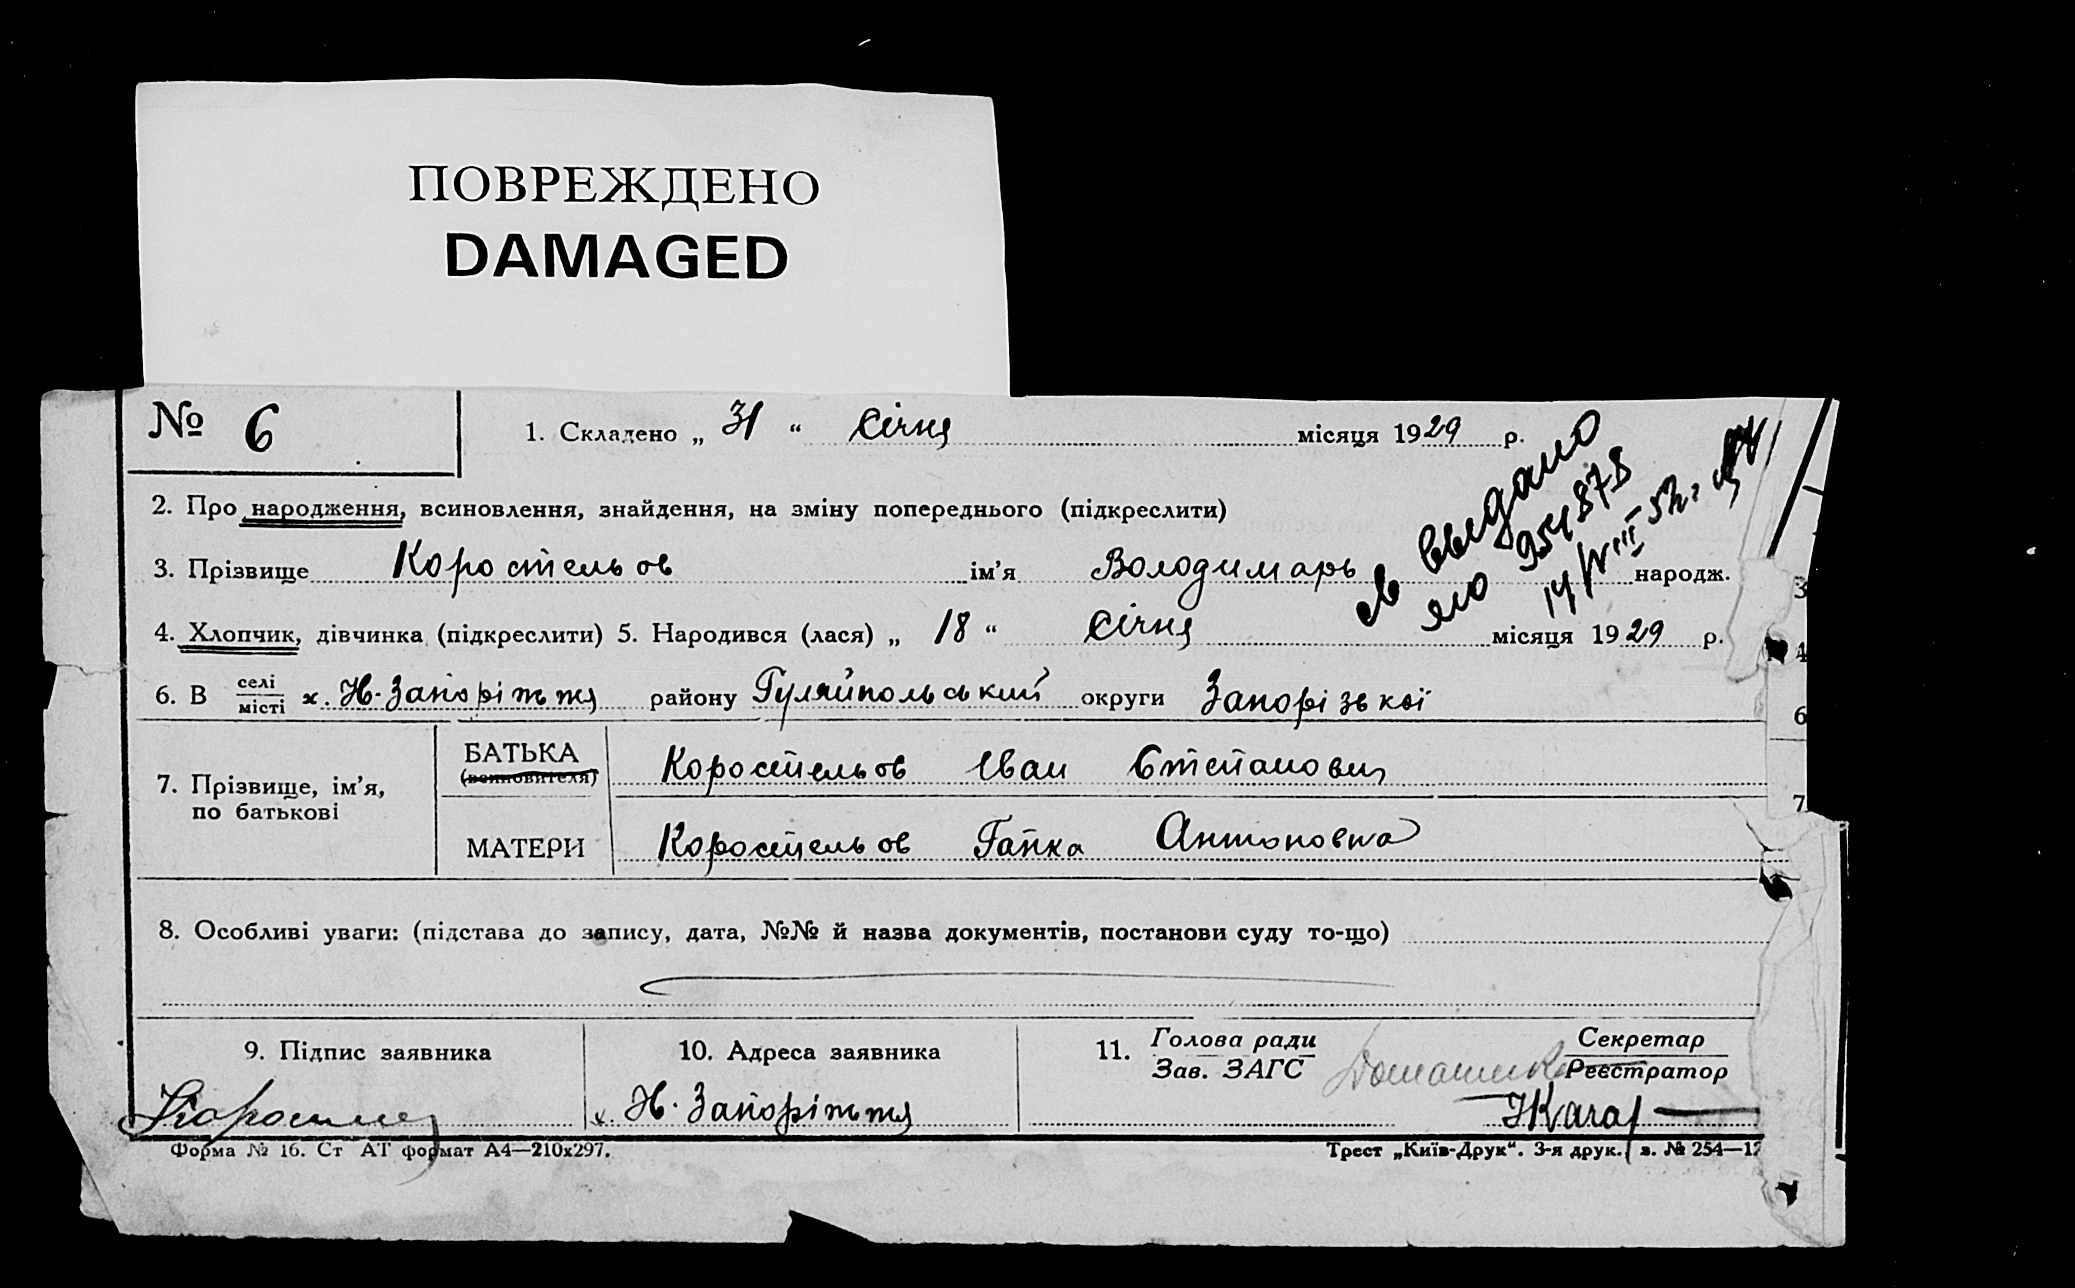 ПОВРЕЖДЕНО
DAMAGED
№ 6
1. Складено „ 31 “ Січня місяця 1929 р.
2. Про народження, всиновлення, знайдення, на зміну попереднього (підкреслити)
3. Прізвище Коростельов ім’я Володимарь народж.
св выдано
яю 954878
14/VIII 52 г.
4. Хлопчик, дівчинка (підкреслити) 5. Народився (лася) „ 18 “ Січня місяця 1929 р.
6. В селі місті х. Н-Запоріжжя району Гуляйпольський округи Запорізької
7. Прізвище, ім’я, по батькові
БАТЬКА (всиновителя) Коростельов Іван Степанович
МАТЕРИ Коростельов Гапка Антоновна
8. Особливі уваги: (підстава до запису, дата, №№ й назва документів, постанови суду то-що)
9. Підпис заявника
10. Адреса заявника
11. Голова ради Зав. ЗАГС
Секретар Реєстратор
х. Н. Запоріжжя
Форма № 16. Ст АТ формат А4—210х297.
Трест „Київ-Друк“. 3-я друк. з. № 254—12
3
4
6
7